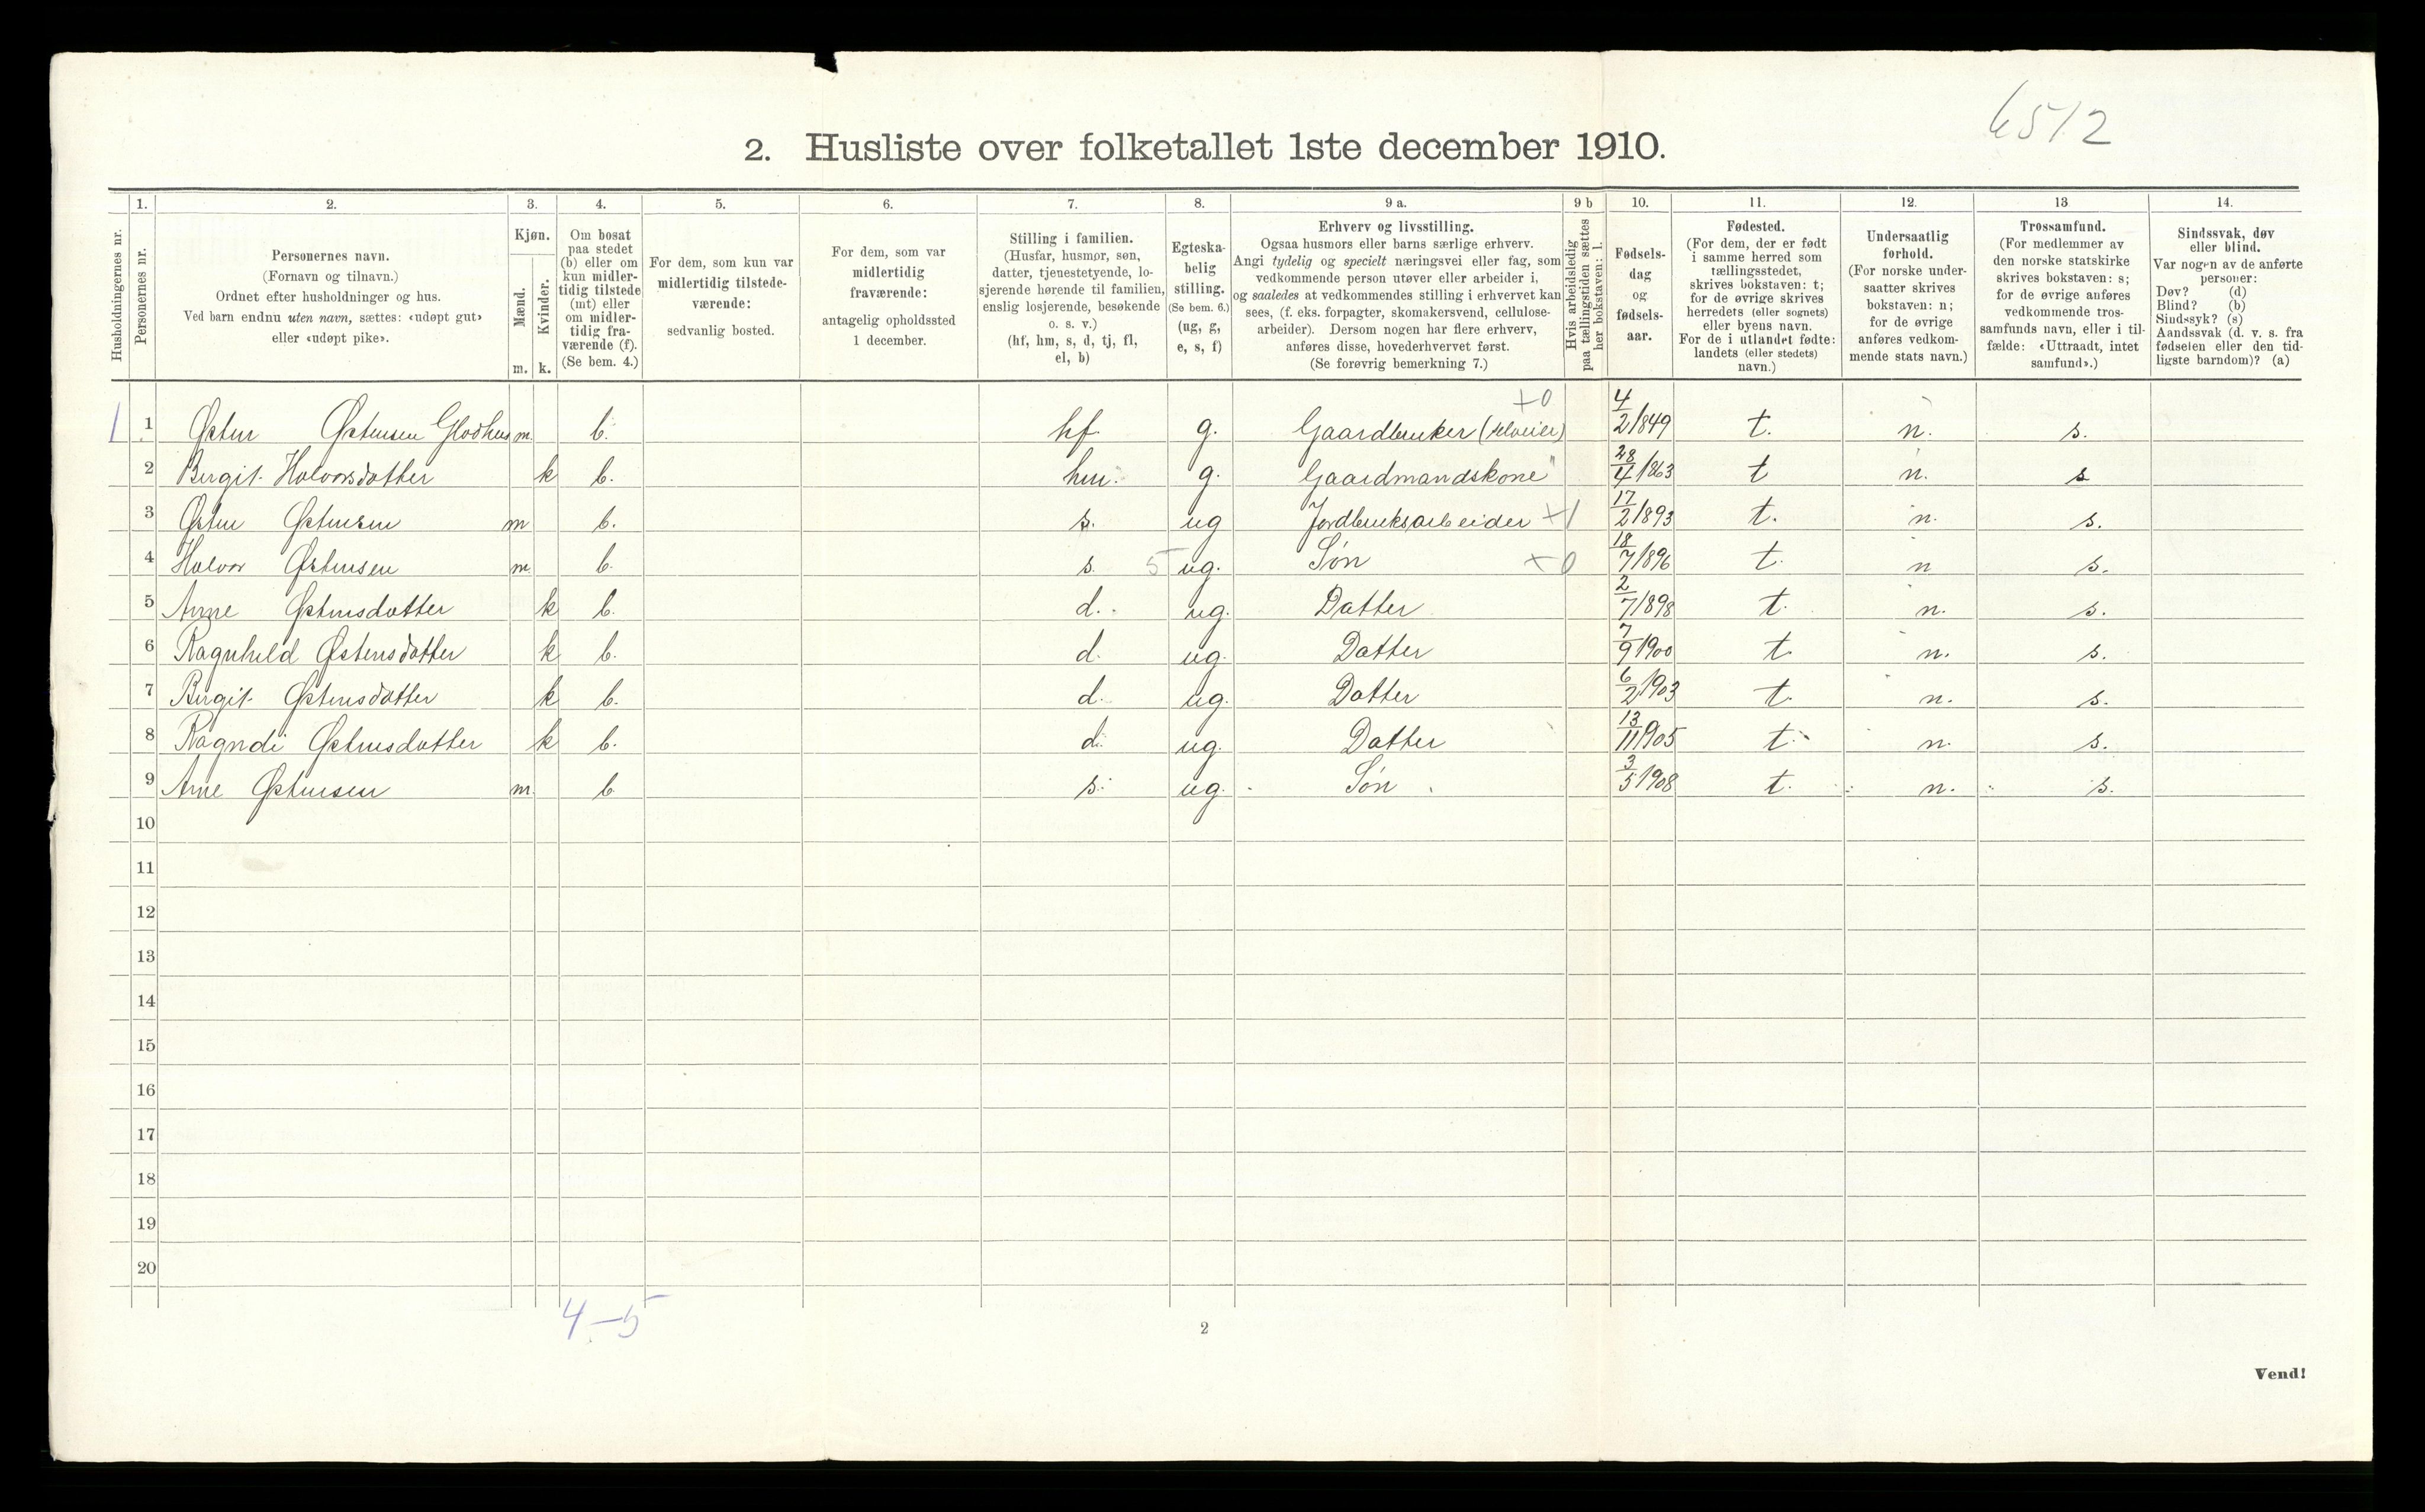 6512
2. Husliste over folketallet 1ste december 1910.
Husholdningernes nr.
1. Personernes nr.
2. Personernes navn.
(Fornavn og tilnavn.)
Ordnet efter husholdninger og hus.
Ved barn endnu uten navn, sættes: «udøpt gut»
eller «udøpt pike».
3. Kjøn.
Mænd. m.
Kvinder. k.
4. Om bosat
paa stedet
(b) eller om
kun midler-
tidig tilstede
(mt) eller
om midler-
tidig fra-
værende (f).
(Se bem. 4.)
5. For dem, som kun var
midlertidig tilstede-
værende:
sedvanlig bosted.
6. For dem, som var
midlertidig
fraværende:
antagelig opholdssted
1 december.
7. Stilling i familien.
(Husfar, husmor, søn,
datter, tjenestetyende, lo-
sjerende hørende til familien,
enslig losjerende, besøkende
o. s. v.)
(hf, hm, s, d, tj, fl,
el, b)
8. Egteska-
belig
stilling.
(Se bem. 6.)
(ug, g,
e, s, f)
9 a. Erhverv og livsstilling.
Ogsaa husmors eller barns særlige erhverv.
Angi tydelig og specielt næringsvei eller fag, som
vedkommende person utøver eller arbeider i,
og saaledes at vedkommendes stilling i erhvervet kan
sees, (f. eks. forpagter, skomakersvend, cellulose-
arbeider). Dersom nogen har flere erhverv,
anføres disse, hovederhvervet først.
(Se forøvrig bemerkning 7.)
9 b Hvis arbeidsledig
paa tællingstiden sættes
her bokstaven: l.
10. Fødsels-
dag
og
fødsels-
aar.
11. Fødested.
(For dem, der er født
i samme herred som
tællingsstedet,
skrives bokstaven: t;
for de øvrige skrives
herredets (eller sognets)
eller byens navn.
For de i utlandet fødte:
landets (eller stedets)
navn.)
12. Undersaatlig
forhold.
(For norske under-
saatter skrives
bokstaven: n;
for de øvrige
anføres vedkom-
mende stats navn.)
13 Trossamfund.
(For medlemmer av
den norske statskirke
skrives bokstaven: s;
for de øvrige anføres
vedkommende tros-
samfunds navn, eller i til-
fælde: «Uttraadt, intet
samfund».)
14. Sindssvak, døv
eller blind.
Var nogen av de anførte
personer:
Døv? (d)
Blind? (b)
Sindssyk? (s)
Aandssvak (d. v. s. fra
fødselen eller den tid-
ligste barndom)? (a)
+0
1 1 Østen Østensen Glodhus m. b. hf g. Gaardbruker (selveier) 4/2 1849 t. n. s.
2 Birgit Halvorsdatter k b. hm. g. Gaardmandskone" 28/4 1863 t n. s
3 Østen Østensen m b. s. ug Jordbruksarbeider +1 17/2 1893 t. n. s.
4 Halvor Østensen m. b. s. 5 ug. Søn +0 18/7 1896 t. n s.
5 Anne Østensdatter k b. d. ug. Datter 2/7 1898 t. n. s.
6 Ragnhild Østensdatter k b. d. ug. Datter 7/9 1900 t. n. s.
7 Birgit Østensdatter k b. d. ug. Datter 6/2 1903 t. n. s.
8 Ragndi Østensdatter k b. d. ug. Datter 13/11 1905 t. n. s.
9 Arne Østensen m. b s. ug. Søn 3/5 1908 t. n. s.
10
11
12
13
14
15
16
17
18
19
20
4-5
2
Vend!